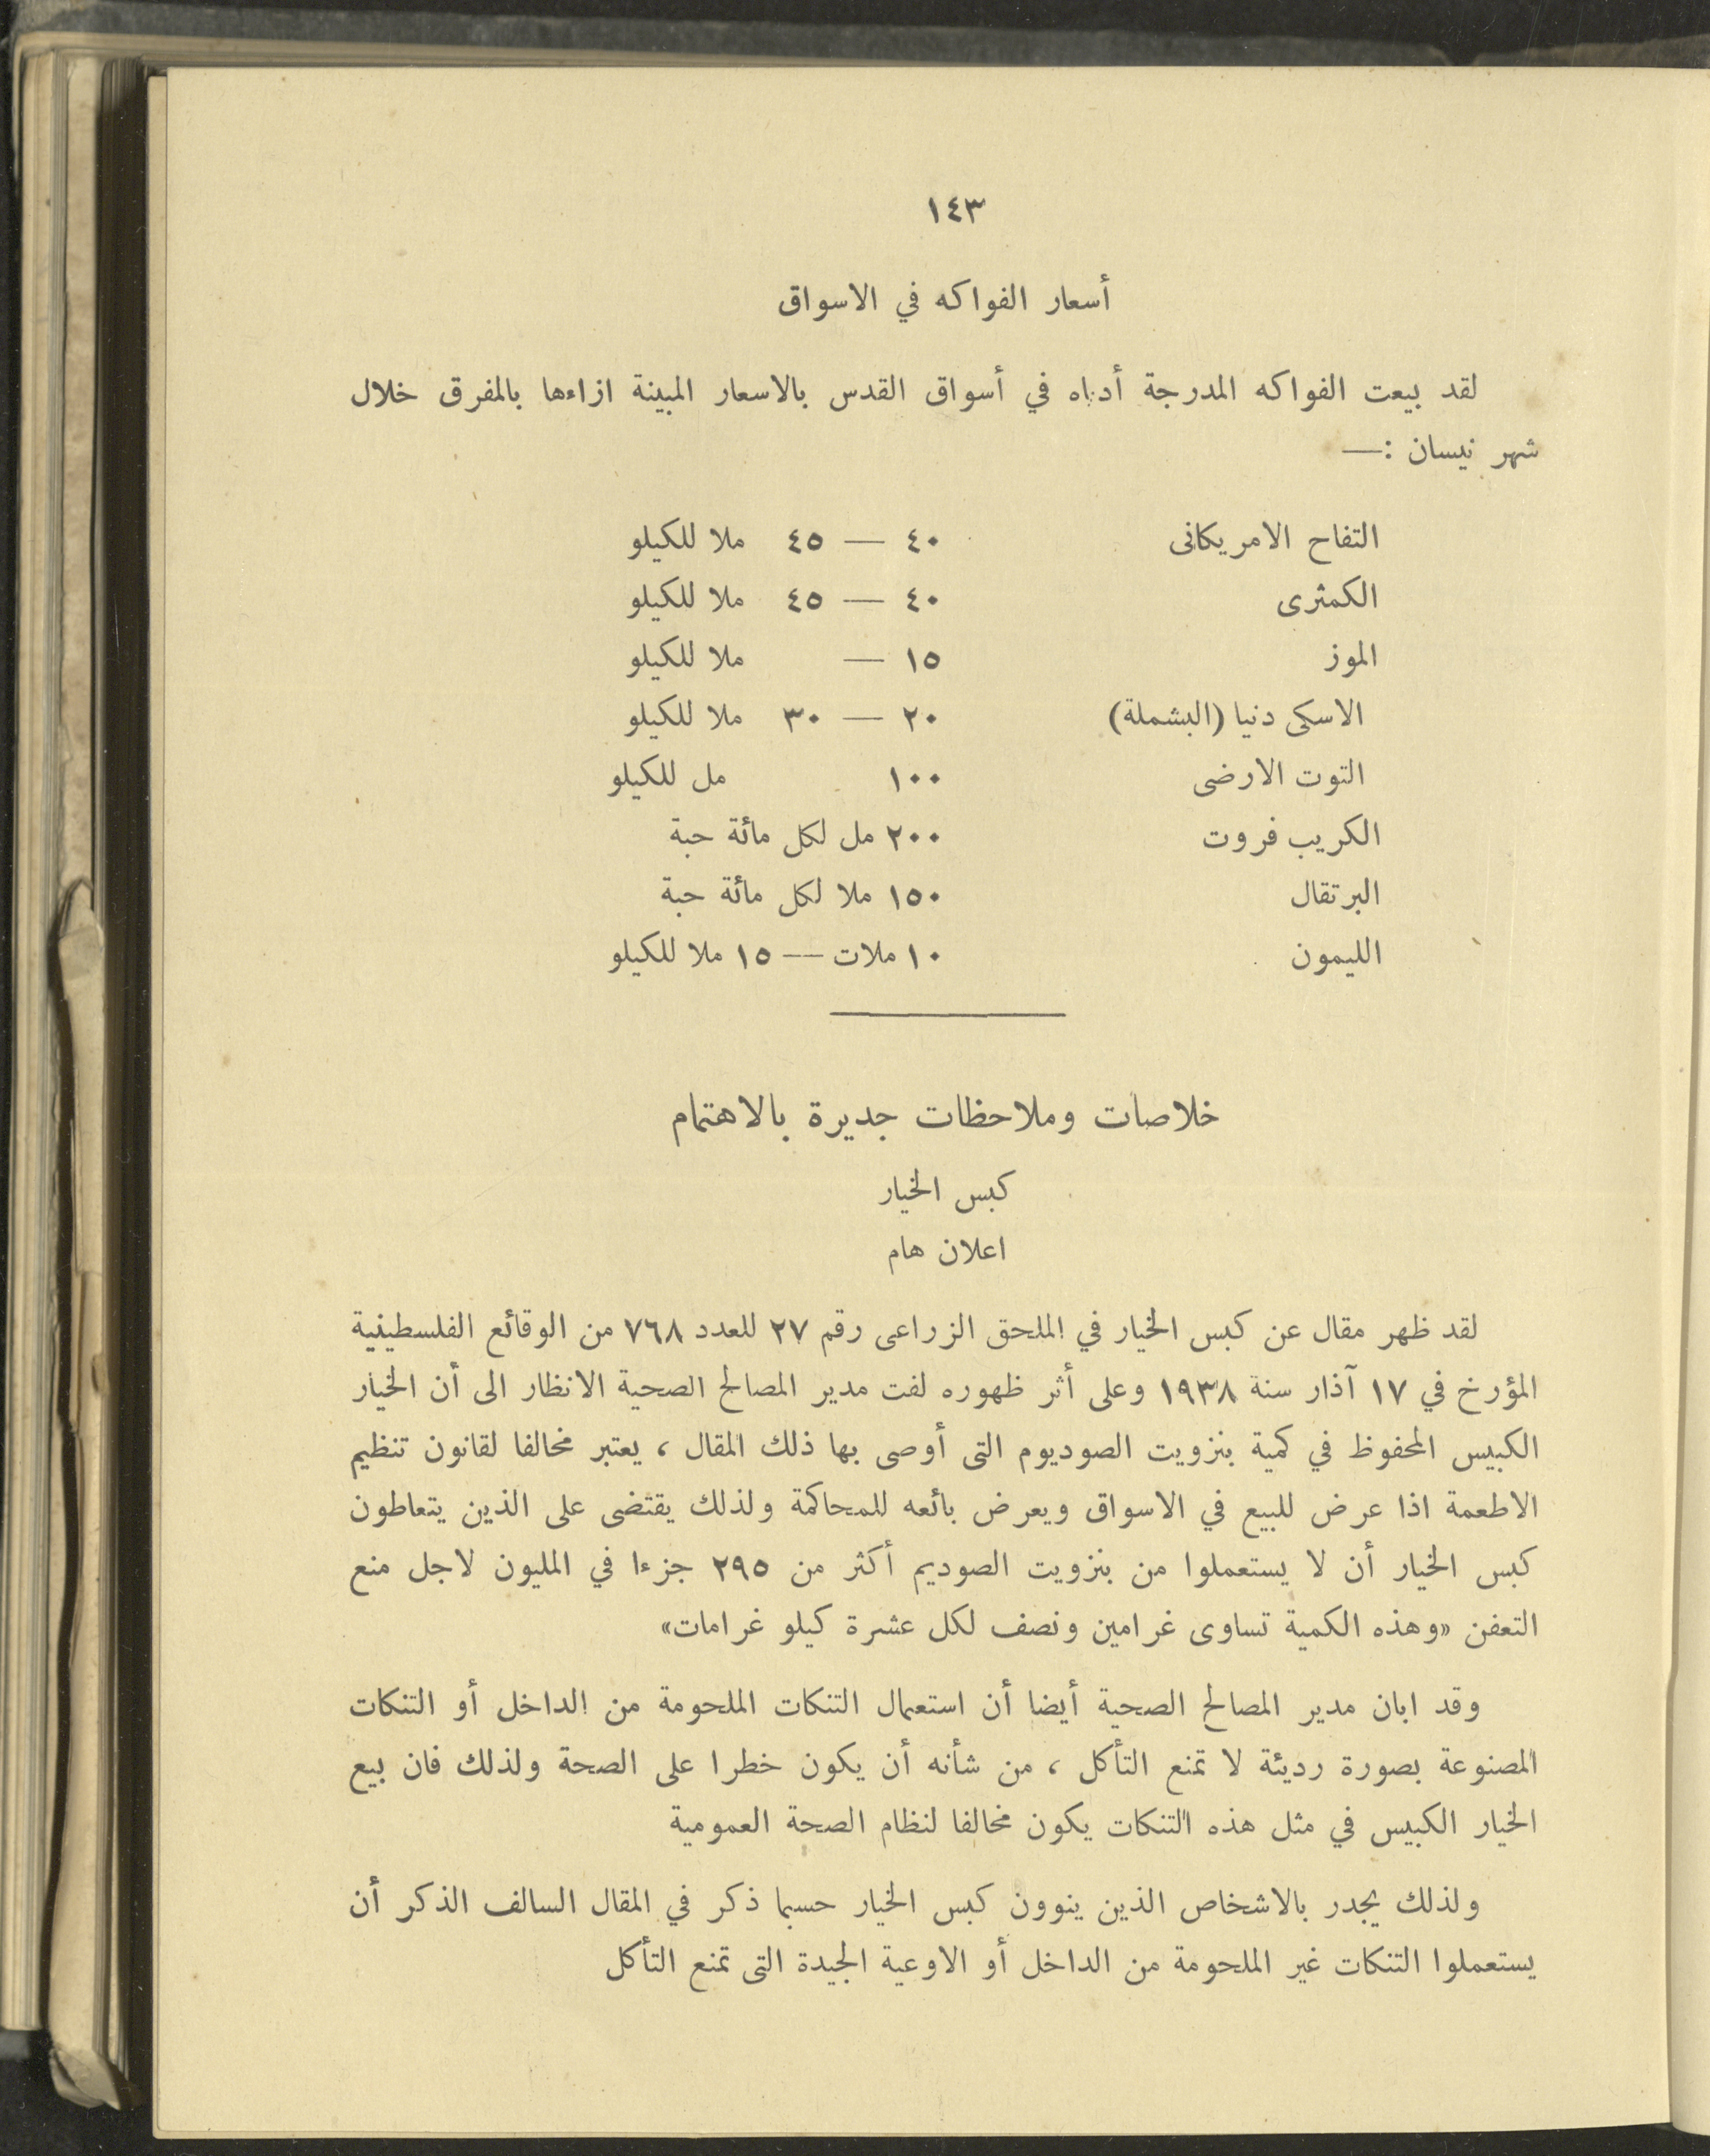 ١٤٣
أسعار الفواكه في الاسواق
لقد بيعت الفواكه المدرجة أدناه في أسواق القدس بالاسعار المبينة ازاءها بالمفرق خلال
شهر نيسان :—
التفاح الامريكانى ٤٠ — ٤٥ ملا للكيلو
الكمثرى ٤٠ — ٤٥ ملا للكيلو
الموز ١٥ — ملا للكيلو
الاسكى دنيا (البشملة) ٢٠ — ٣٠ ملا للكيلو
التوت الارضى ١٠٠ مل للكيلو
الكريب فروت ٢٠٠ مل لكل مائة حبة
البرتقال ١٥٠ ملا لكل مائة حبة
الليمون ١٠ ملات — ١٥ ملا للكيلو
خلاصات وملاحظات جديرة بالاهتمام
كبس الخيار
اعلان هام
لقد ظهر مقال عن كبس الخيار في الملحق الزراعى رقم ٢٧ للعدد ٧٦٨ من الوقائع الفلسطينية
المؤرخ في ١٧ آذار سنة ١٩٣٨ وعلى أثر ظهوره لفت مدير المصالح الصحية الانظار الى أن الخيار
الكبيس المحفوظ في كمية بنزويت الصوديوم التى أوصى بها ذلك المقال ، يعتبر مخالفا لقانون تنظيم
الاطعمة اذا عرض للبيع في الاسواق ويعرض بائعه للمحاكمة ولذلك يقتضى على الذين يتعاطون
كبس الخيار أن لا يستعملوا من بنزويت الصوديم أكثر من ٢٩٥ جزءا في المليون لاجل منع
التعفن «وهذه الكمية تساوى غرامين ونصف لكل عشرة كيلو غرامات»
وقد ابان مدير المصالح الصحية أيضا أن استعمال التنكات الملحومة من الداخل أو التنكات
المصنوعة بصورة رديئة لا تمنع التأكل ، من شأنه أن يكون خطرا على الصحة ولذلك فان بيع
الخيار الكبيس في مثل هذه التنكات يكون مخالفا لنظام الصحة العمومية
ولذلك يجدر بالاشخاص الذين ينوون كبس الخيار حسبما ذكر في المقال السالف الذكر أن
يستعملوا التنكات غير الملحومة من الداخل أو الاوعية الجيدة التى تمنع التأكل